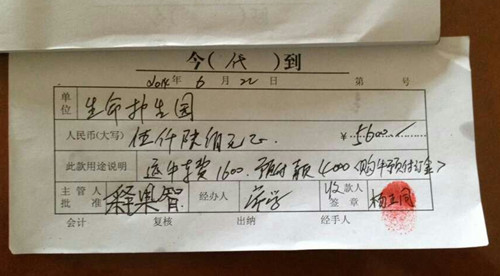 今(代)到
2014年 6月 22日 第 号
单位 生命护生园
人民币(大写) 伍仟陆佰元正 ¥5600
此款用途说明 运牛车费1600. 预付款4000<购牛预付订金>
主管人批准 释果智 经办人 收款人签章 杨
会计 复核 出纳 经手人